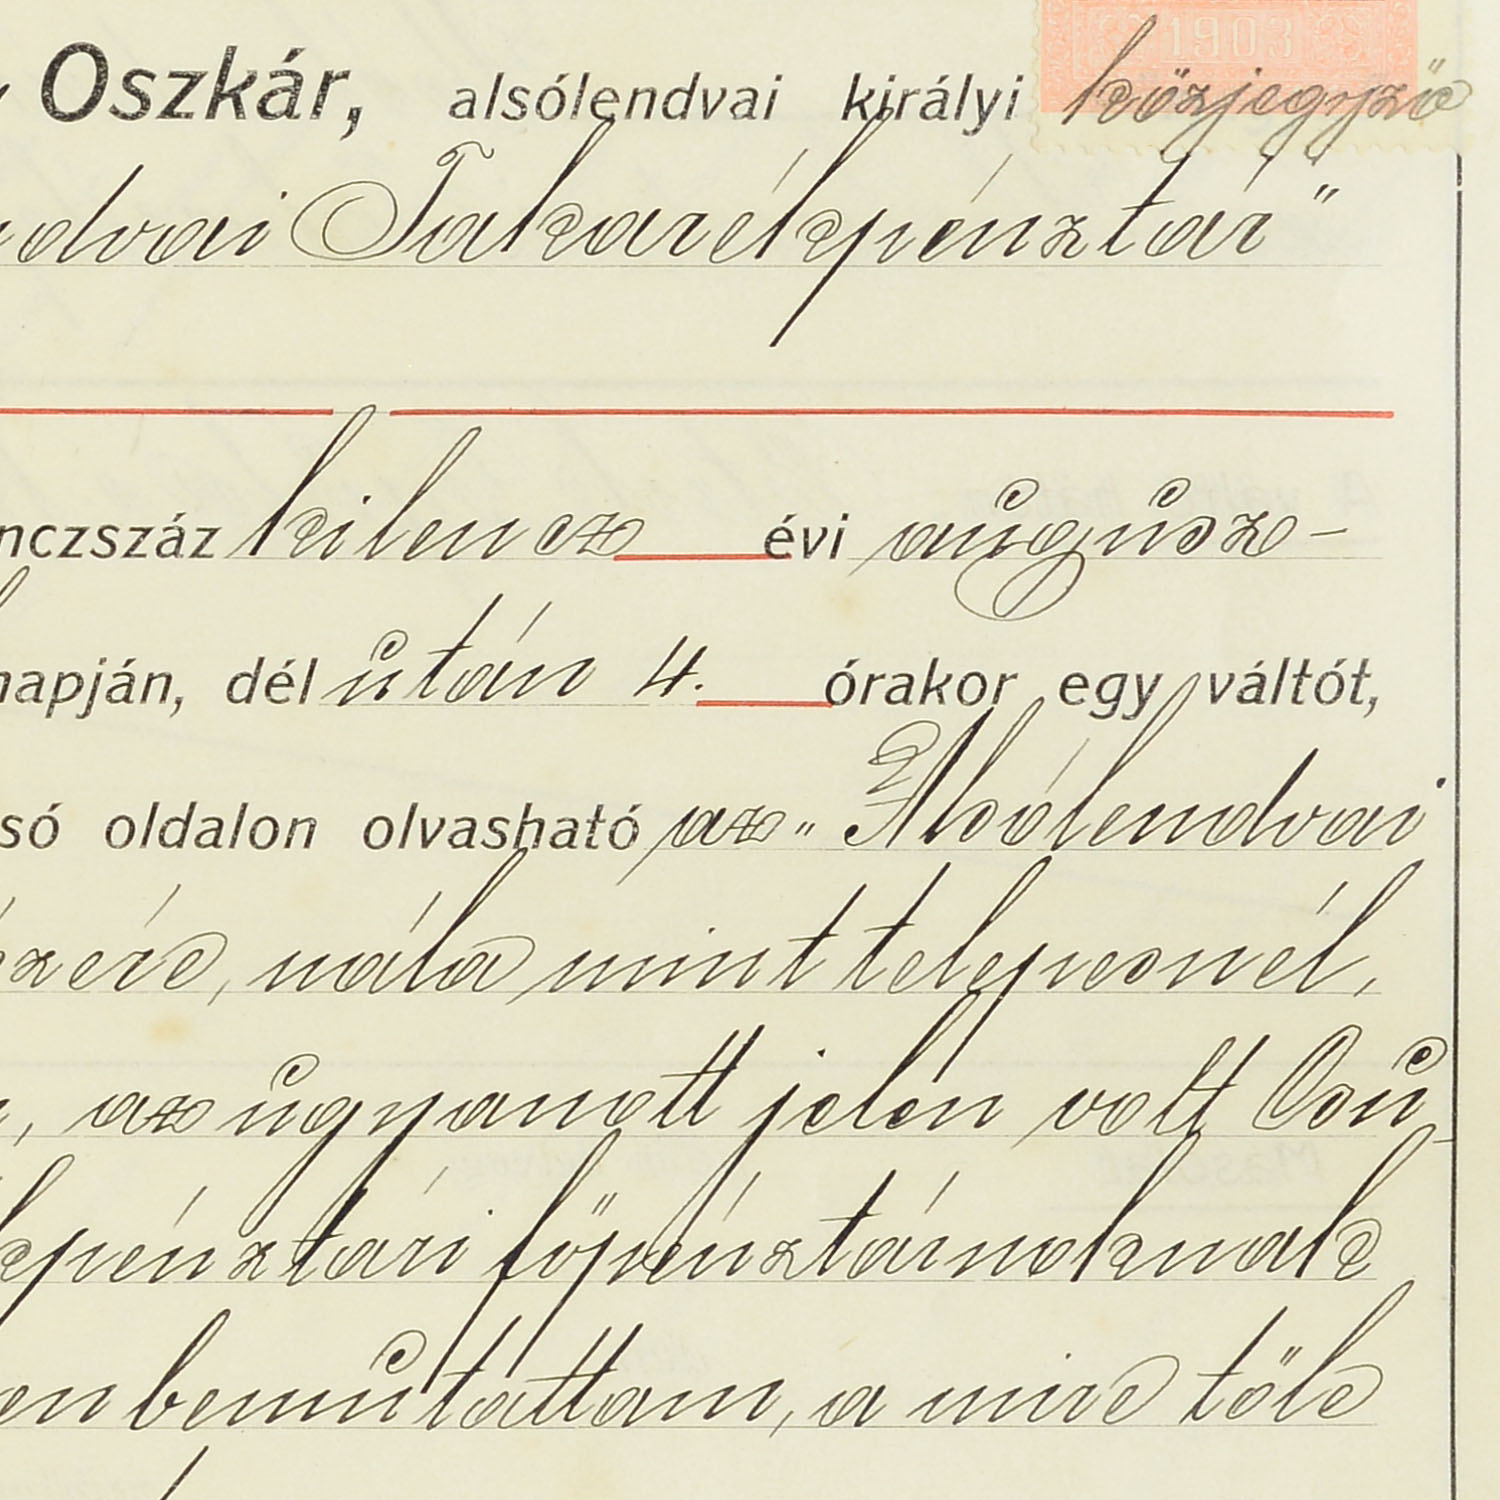 Oszkár, alsólendvai királyi közjegyző
1903
ndvai Takarékpénztár"
nczszáz kilencz évi augusz-
napján, dél után 4. órakor egy váltót,
só oldalon olvasható az „Alsólendvai
ézére, nála mint telepesnél,
, azugyanott jelen volt Csu
kpénztári főpénztárnoknak
en bemutattam, a mire tőle